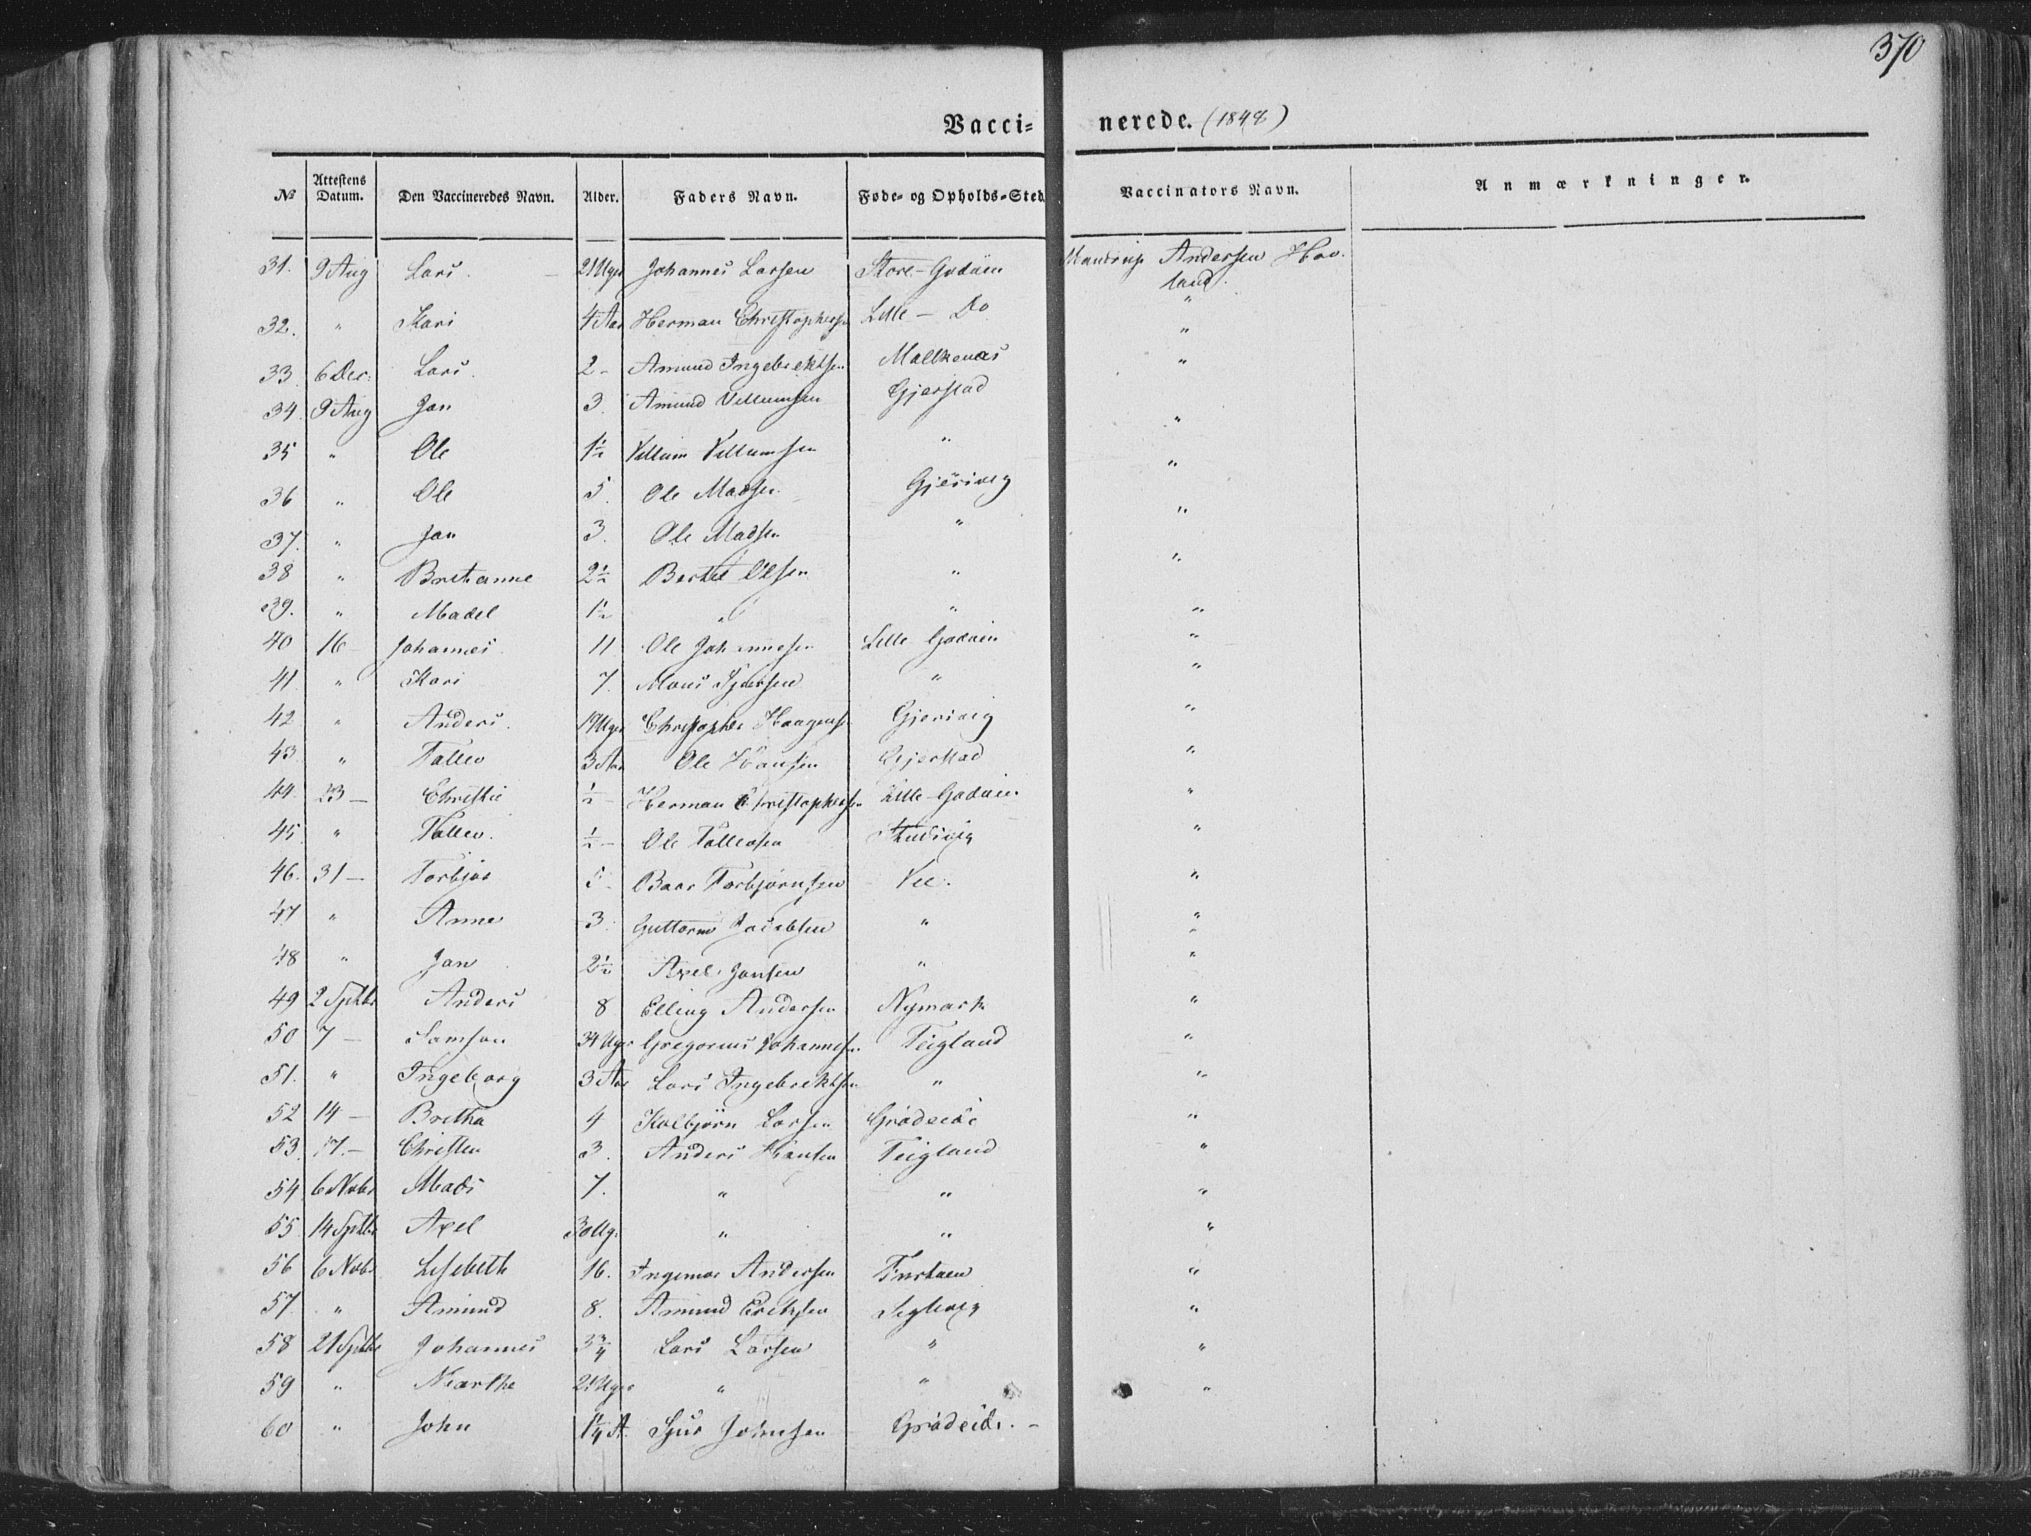 370
Vacci- nerede. (1848)
No Attestens Datum. Den Vaccineredes Navn. Alder. Faders Navn. Føde- og Opholds-Sted. Vaccinators Navn. Anmærkninger.
31. 9 Aug Lars. 21 Uger Johannes Larsen Store-Godøen Mandrup Andersen Hov-
land.
32. " Kari 4 Aar Herman Christophersen Lille - Do "
33. 6 Dec. Lars. 2 - Amund Ingebrektsen Malkenæs "
34. 9 Aug Jan 3. Amund Villumsen Gjerstad "
35 " Ole 1½ Villum Villumsen " "
36 " Ole 5. Ole Madsen Gjerivig "
37. " Jan 3. Ole Madsen " "
38 " Brithanne 2½ Bertel Olsen " "
39. " Madel 1½ " " "
40 16 - Johannes 11 Ole Johannesen Lille Godøen "
41 " Kari 7. Mons Sjursen " "
42 " Anders. 19 Uger Christopher Haagens. Gjerivig "
43 " Tallev 3 Aar Ole Hansen Gjerstad "
44. 23 - Christie ½ - Herman Christophersen Lille-Godøen "
45 " Tallev. ½ - Ole Tallevsen "
46. 31 - Torbjør 5 - Baar Torbjørnsen Vee. "
47 " Anne 3. Guttorm Jacobsen " "
48 " Jan 2½ Axel Jansen " "
49 2 Sptbr Anders 8 Elling Andersen Nymark "
50 7 - Samson 34 Uger Gregorius Johannesen Teigland "
51. " Ingeborg 3 Aar Lars Ingebrektsen " "
52 14 - Britha 4 Kolbjørn Larsen Grødeide "
53. 17. - Christen 3. Anders Hansen Teigland "
54 6 Novbr Mads 7. " " "
55 14 Sptbr Axel 30 Ug. " " "
56 6 Novbr Lisebeth 16. Ingemar Andersen "
57. " Amund 8. Amund Eriksen "
58 21 Sptbr Johannes 3¾ Lars Larsen " "
59 " Marthe 21 Uger " " "
60 " John 1¼ A. Sjur Johnsen Grødeide. -